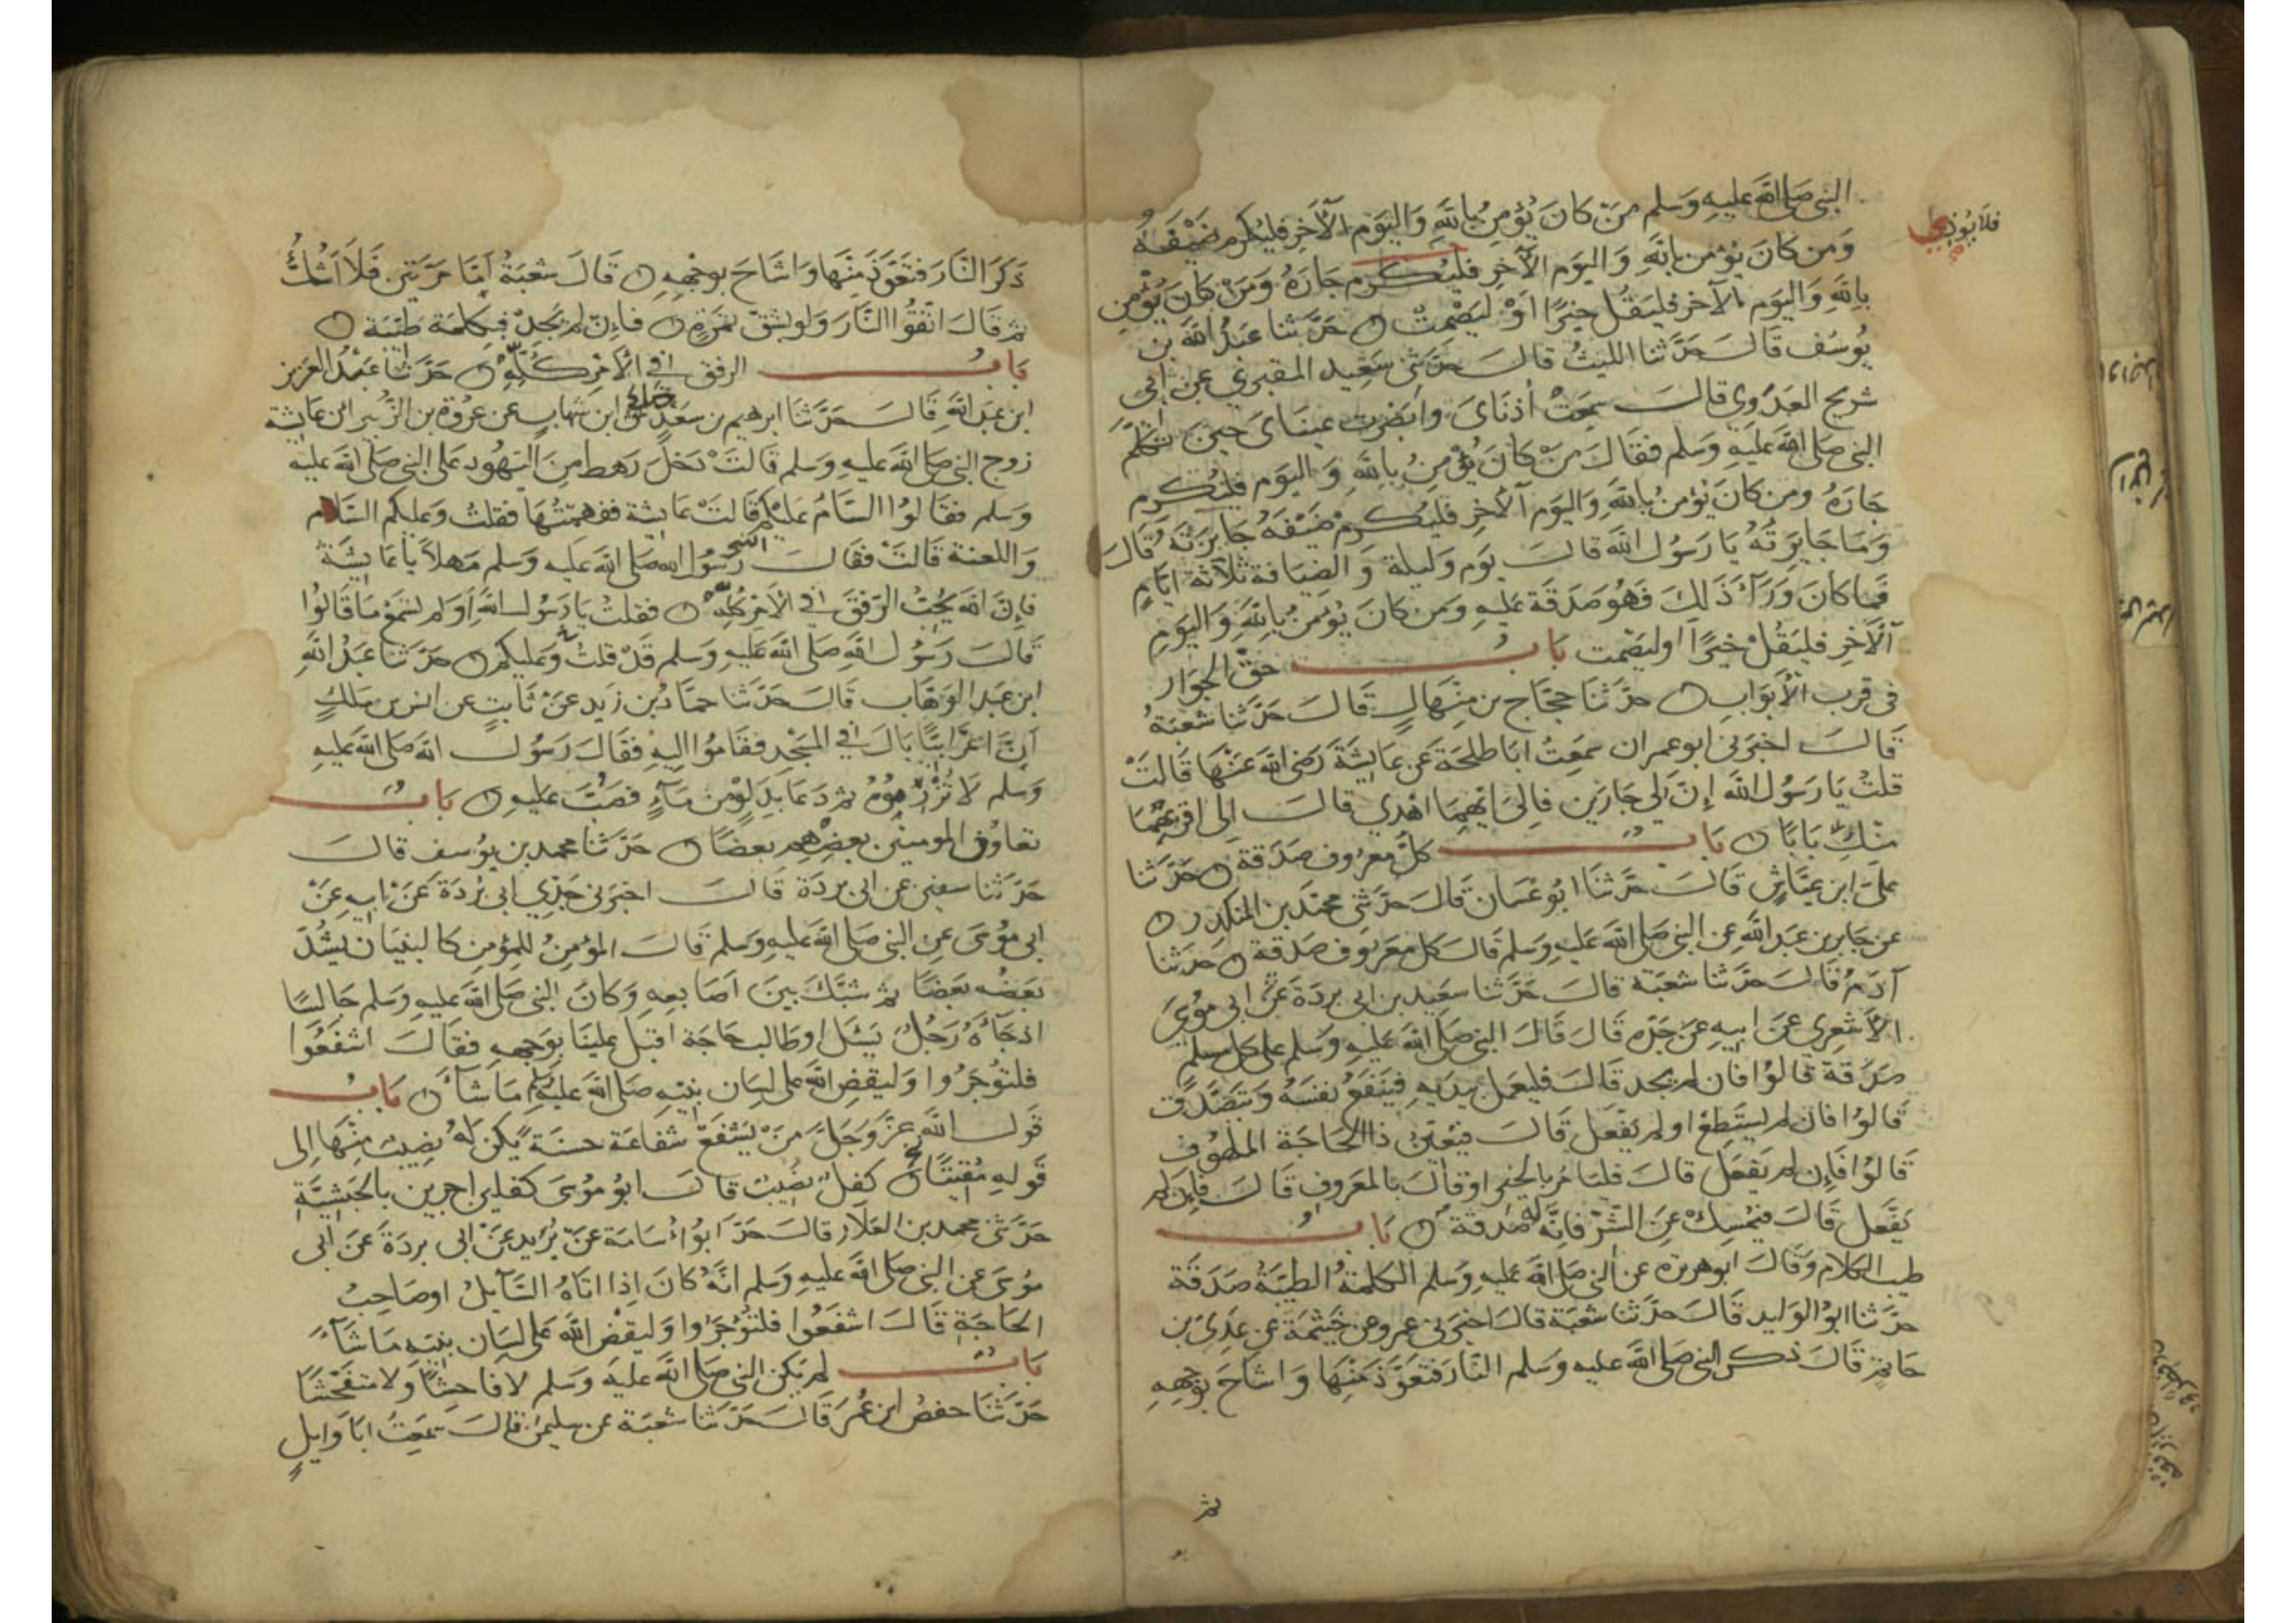 النبي صلى الله عليه وسلم من كان يؤمن بالله واليوم الآخر فليكرم ضيفه
فلا يؤذي
ومن كان يؤمن بالله واليوم الآخر فليكرم جاره ومن كان يؤمن
بالله واليوم الآخر فليقل خيرًا أو ليصمت ن حدثنا عبد الله بن
يوسف قال حدثنا الليث قال حدثني سعيد المقبري عن أبي
شريح العدوي قال سمعت أذناي وأبصرت عيناي حين تكلم
النبي صلى الله عليه وسلم فقال من كان يؤمن بالله واليوم فليكرم
جاره ومن كان يؤمن بالله واليوم الآخر فليكرم ضيفه جايزته قال
وما جايزته يا رسول الله قال يوم وليلة والضيافة ثلاثة أيام
فما كان وراء ذلك فهو صدقة عليه ومن كان يؤمن بالله واليوم
الآخر فليقل خيرًا أو ليصمت باب حق الجوار
في قرب الأبواب ن حدثنا حجاج بن منهال قال حدثنا شعبة
قال أخبرني أبو عمران سمعت أبا طلحة عن عايشة رضي الله عنها قالت
قلت يا رسول الله إن لي جارين فإلى أيهما أهدي قال إلى أقربهما
منك بابا ن باب كل معروف صدقة ن حدثنا
علي ابن عياش قال حدثنا أبو غسان قال حدثني محمد بن المنكدر ن
عن جابر بن عبد الله عن النبي صلى الله عليه وسلم قال كل معروف صدقة ن حدثنا
آدم قال حدثنا شعبة قال حدثنا سعيد بن أبي بردة عن أبي موسى
الأشعري عن أبيه عن جده قال قال النبي صلى الله عليه وسلم على كل مسلم
صدقة قالوا فإن لم يجد قال فليعمل بيديه فينفع نفسه ويتصدق
قالوا فإن لم يستطع أو لم يفعل قال فيعين ذا الحاجة الملهوف
قالوا فإن لم يفعل قال فليأمر بالخير أو قال بالمعروف قال فإن لم
يفعل قال فيمسك عن الشر فإنه له صدقة ن باب
طيب الكلام وقال أبو هريرة عن النبي صلى الله عليه وسلم الكلمة الطيبة صدقة
حدثنا أبو الوليد قال حدثنا شعبة قال أخبرني عمرو عن خيثمة عن عدي بن
حاتم قال ذكر النبي صلى الله عليه وسلم النار فتعوذ منها وأشاح بوجهه
ثم
ذكر النار فتعوذ منها وأشاح بوجهه ن قال شعبة أما مرتين فلا أشك
ثم قال اتقوا النار ولو بشق تمرة ن فإن لم يجد فبكلمة طيبة ن
باب الرفق في الأمر كله ن حدثنا عبد العزيز
ابن عبد الله قال حدثنا ابرهيم بن سعد عن صالح عن ابن شهاب عن عروة بن الزبير ان عايشة
زوج النبي صلى الله عليه وسلم قالت دخل رهط من اليهود على النبي صلى الله عليه
وسلم فقالوا السام عليكم قالت عايشة ففهمتها فقلت وعليكم السام
واللعنة قالت فقال رسول الله صلى الله عليه وسلم مهلا يا عايشة
فإن الله يحب الرفق في الأمر كله ن فقلت يا رسول الله أو لم تسمع ما قالوا
قال رسول الله صلى الله عليه وسلم قد قلت وعليكم ن حدثنا عبد الله
ابن عبد الوهاب قال حدثنا حماد بن زيد عن ثابت عن انس بن ملك
أن أعرابيا بال في المسجد فقاموا إليه فقال رسول الله صلى الله عليه
وسلم لا تزرموه ثم دعا بدلو من ماء فصب عليه ن باب
تعاون المومنين بعضهم بعضا ن حدثنا محمد بن يوسف قال
حدثنا سفين عن أبي بردة قال أخبرني جدي أبي بردة عن أبيه عن
أبي موسى عن النبي صلى الله عليه وسلم قال المؤمن للمؤمن كالبنيان يشد
بعضه بعضا ثم شبك بين أصابعه وكان النبي صلى الله عليه وسلم جالسا
اذ جاءه رجل يسئل أو طالب حاجة أقبل علينا بوجهه فقال اشفعوا
فلتؤجروا وليقض الله على لسان نبيه صلى الله عليه وسلم ما شاء ن باب
قول الله عز وجل من يشفع شفاعة حسنة يكن له نصيب منها إلى
قوله مقيتا ن كفل نصيب قال أبو موسى كفلين أجرين بالحبشية
حدثني محمد بن العلاء قال حدثنا أبو أسامة عن بريد عن أبي بردة عن أبي
موسى عن النبي صلى الله عليه وسلم انه كان إذا اتاه السآيل أو صاحب
الحاجة قال اشفعوا فلتؤجروا وليقض الله على لسان نبيه ما شاء
باب لم يكن النبي صلى الله عليه وسلم لا فاحشا ولا متفحشا
حدثنا حفص ابن عمر قال حدثنا شعبة عن سليمن قال سمعت أبا وايل